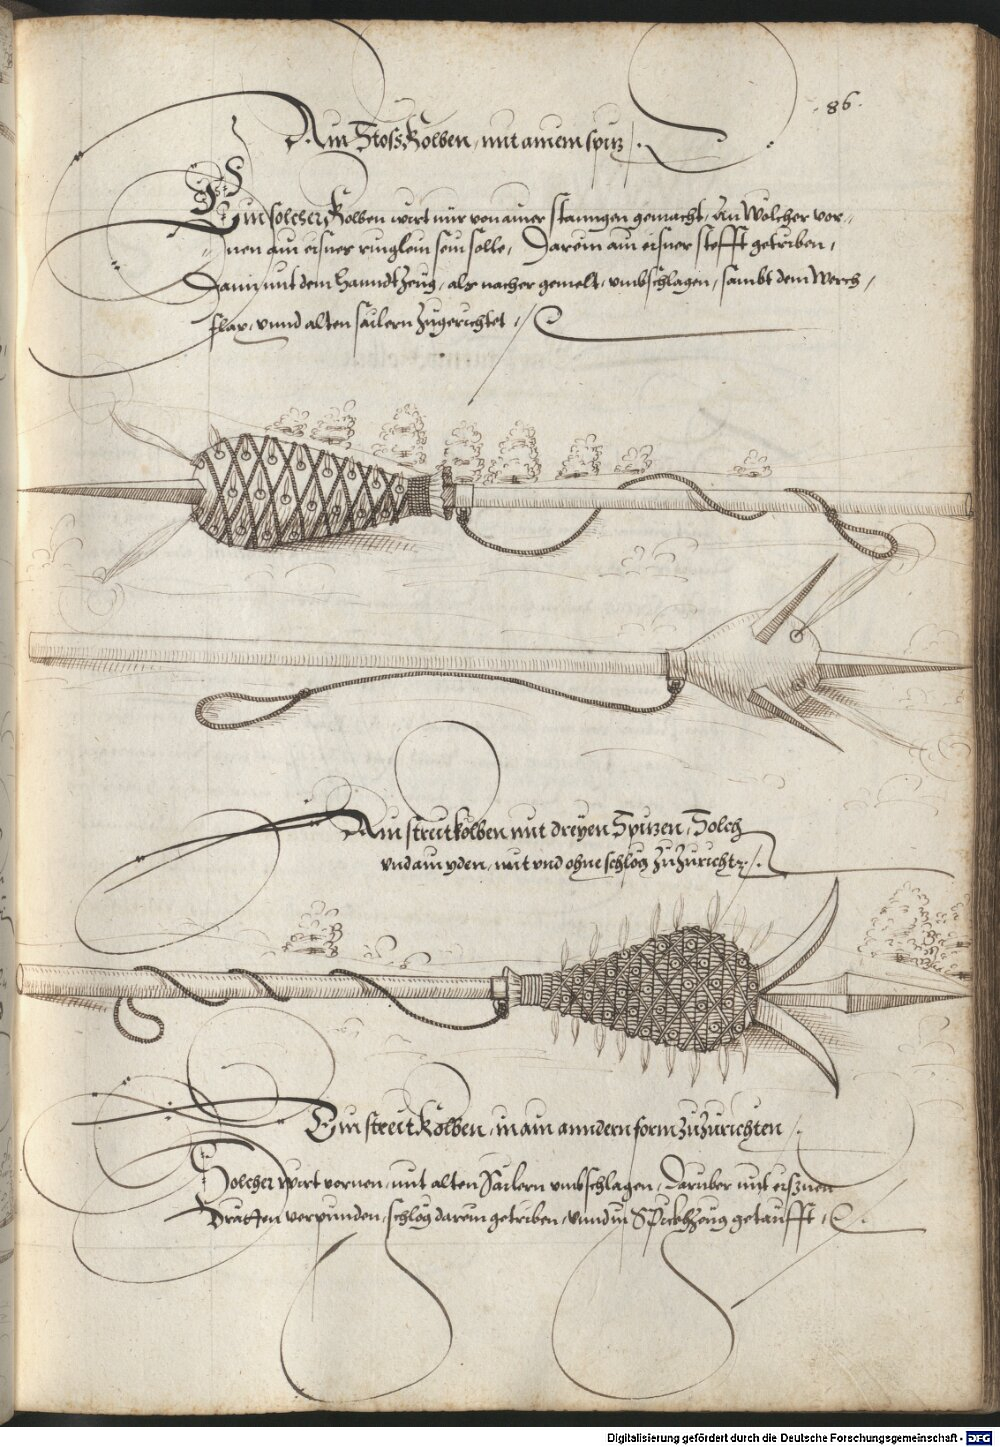 .86.
Ain Stosskolben, mit ainem spiz
Ein solcher Kolben wirt nur von ainer stanngen gemacht, An wölcher vor-
nen ain eisnes ringlein sein solle, Darein ain eisner stefft getriben,
Dann mit dem Hanndtzeug, als nacher gemelt, umbschlagen, sambt dem Werch,
flax, unnd alten sailern zugerichtet
Ain streitkolben mit dreyen Spizen, Solch
und ain yden, mit und ohne schlög zuzurichten
Ein streit Kolben, in ain anndern form zuzurichten
Solcher wirt vornen, mit alten Sailern umbschlagen, Daruber mit eisznen
Drätten verpunden, schlög darein getriben, unnd in Spickhzeug getaufft
Digitalisierung gefördert durch die Deutsche Forschungsgemeinschaft - DFG